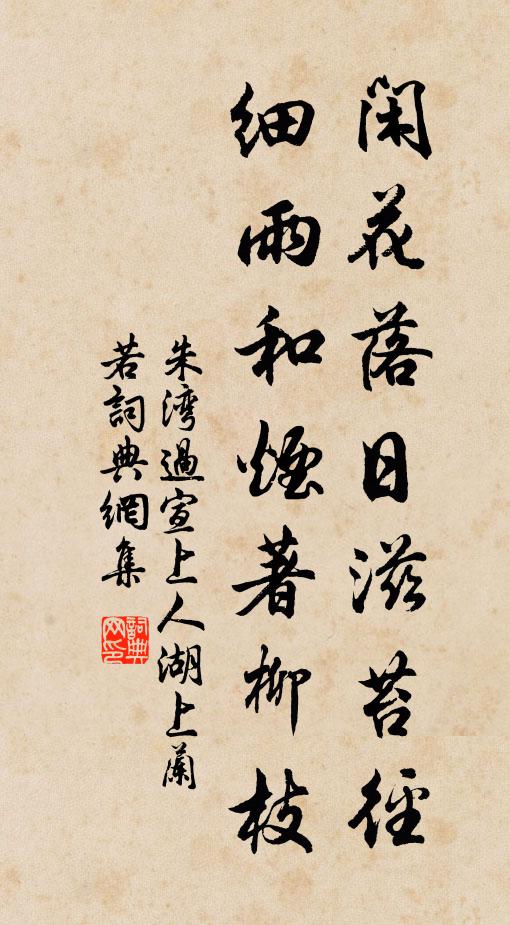 閑花落日滋苔徑
細雨和煙著柳枝
朱灣過宣上人湖上蘭
若詞典網集
詞典
网印